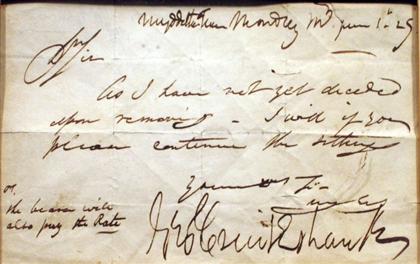 Myddelton Monday Mg June 1st 29
Dr Sir
As I have not yet decided
upon removing - I will if you
please continue the sittings
Yours
Geo Cruikshank
or,
the bearer will
also pay the Rate